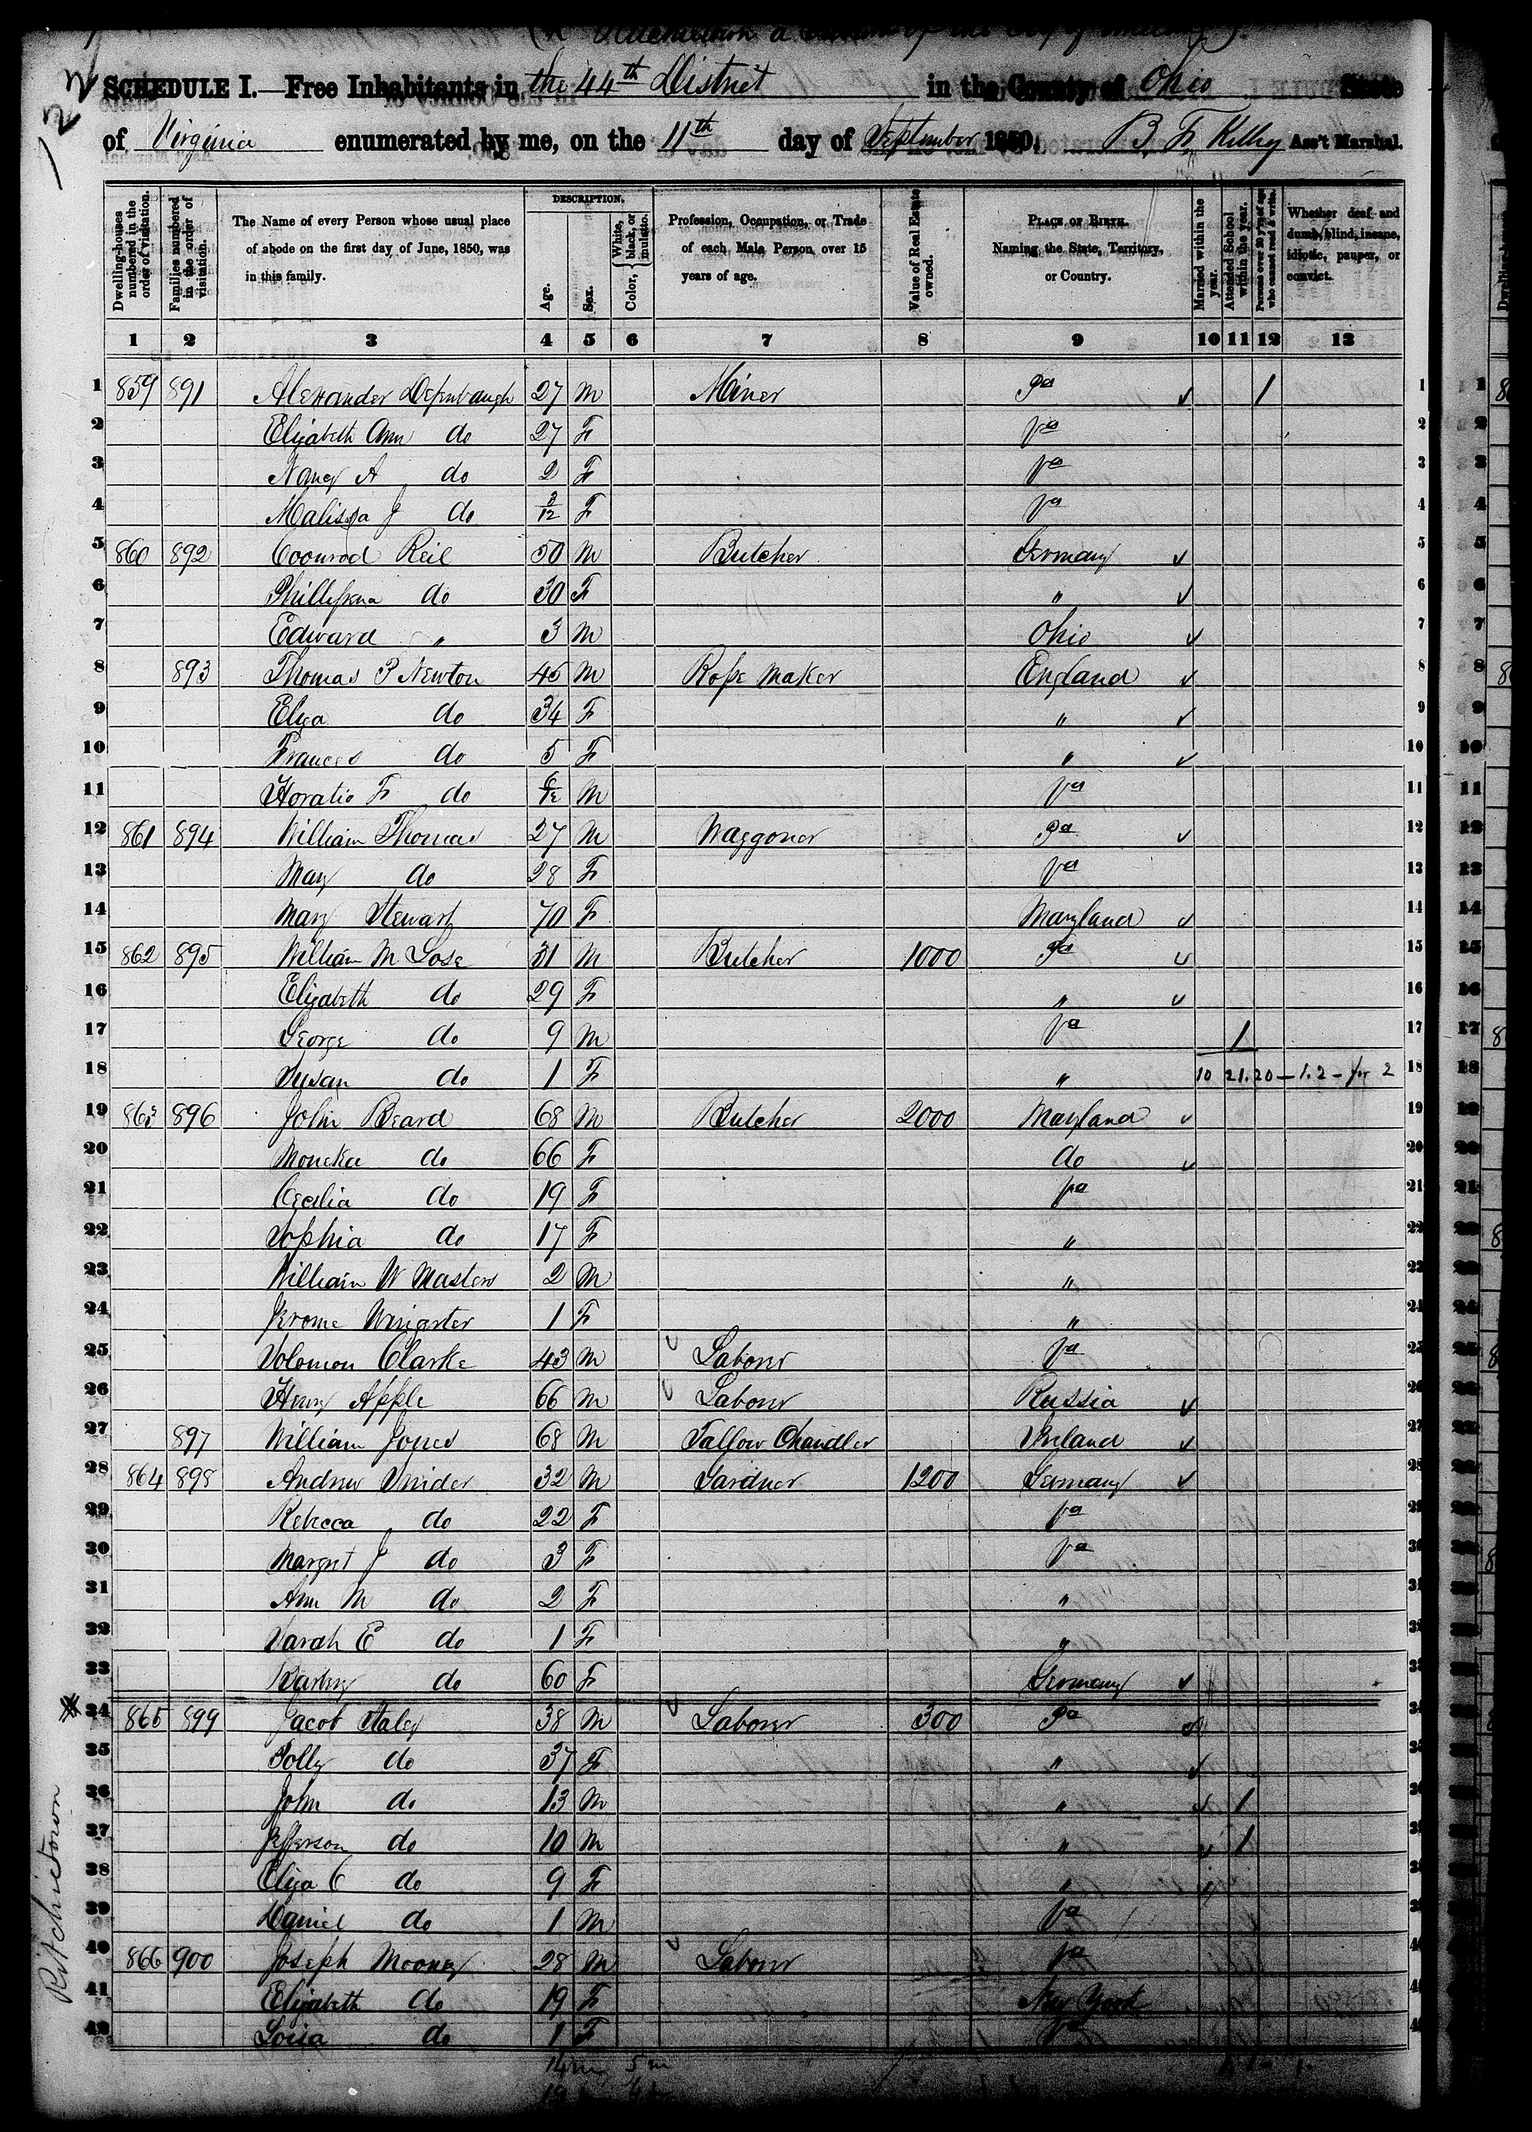 122
SCHEDULE I.—Free Inhabitants in the 44th District in the County of Ohio State
of Virginia enumerated by me, on the 11th day of September 1850. B. F. Kelley Ass't Marshal.
Dwelling-houses numbered in the order of visitation.
Families numbered in the order of visitation.
The Name of every Person whose usual place of abode on the first day of June, 1850, was in this family.
DESCRIPTION.
Age.
Sex.
Color, { White, black, or mulatto.
Profession, Occupation, or Trade of each Male Person over 15 years of age.
Value of Real Estate owned.
PLACE OF BIRTH. Naming the State, Territory, or Country.
Married within the year.
Attended School within the year.
Persons over 20 y'rs of age who cannot read & write.
Whether deaf and dumb, blind, insane, idiotic, pauper, or convict.
1 2 3 4 5 6 7 8 9 10 11 12 13
1 859 891 Alexander Defenbaugh 27 M Miner Pa 1 1
2 Elizabeth Ann do 27 F Va 2
3 Nancy A do 2 F Va 3
4 Malissa J do /12 F Va 4
5 860 892 Coonrod Reil 50 M Butcher Germany 5
6 Phillipena do 30 F " 6
7 Edward " 3 M Ohio 7
8 893 Thomas P Newton 45 M Rope Maker England 8
9 Eliza do 34 F " 9
10 Frances do 5 F " 10
11 Horatio F do 6/12 M Va 11
12 861 894 William Thomas 27 M Waggoner Pa 12
13 Mary do 28 F Va 13
14 Mary Stewart 70 F Maryland 14
15 862 895 William M Lose 31 M Butcher 1000 Pa 15
16 Elizabeth do 29 F " 16
17 George do 9 M Va 1 17
18 Susan do 1 F " 10 21.20—1.2— for 2 18
19 863 896 John Beard 68 M Butcher 2000 Maryland 19
20 Moneka do 66 F do 20
21 Cecelia do 19 F Va 21
22 Sophia do 17 F " 22
23 William W Masters 2 M " 23
24 Jerome Wingarter 1 F " 24
25 Solomon Clarke 43 M Laborer Va 25
26 Henry Apple 66 M Laborer Russia 26
27 897 William Jones 68 M Tallow Chandler Ireland 27
28 864 898 Andrew Snider 32 M Gardner 1200 Germany 28
29 Rebecca do 22 F Va 29
30 Margret J do 3 F Va 30
31 Ann M do 2 F " 31
32 Sarah E do 1 F " 32
33 Barbry do 60 F Germany 33
34 865 899 Jacob Staley 38 M Laborer 300 Pa 34
35 Polly do 37 F " 35
36 John do 13 M " 1 36
37 Jefferson do 10 M " 1 37
38 Eliza C do 9 F " 38
39 Daniel do 1 M Va 39
40 866 900 Joseph Mooney 28 M Laborer Va 40
41 Elizabeth do 19 F New York 41
42 Loisa do 1 F Va 42
Ritchietown
14 m 5 m